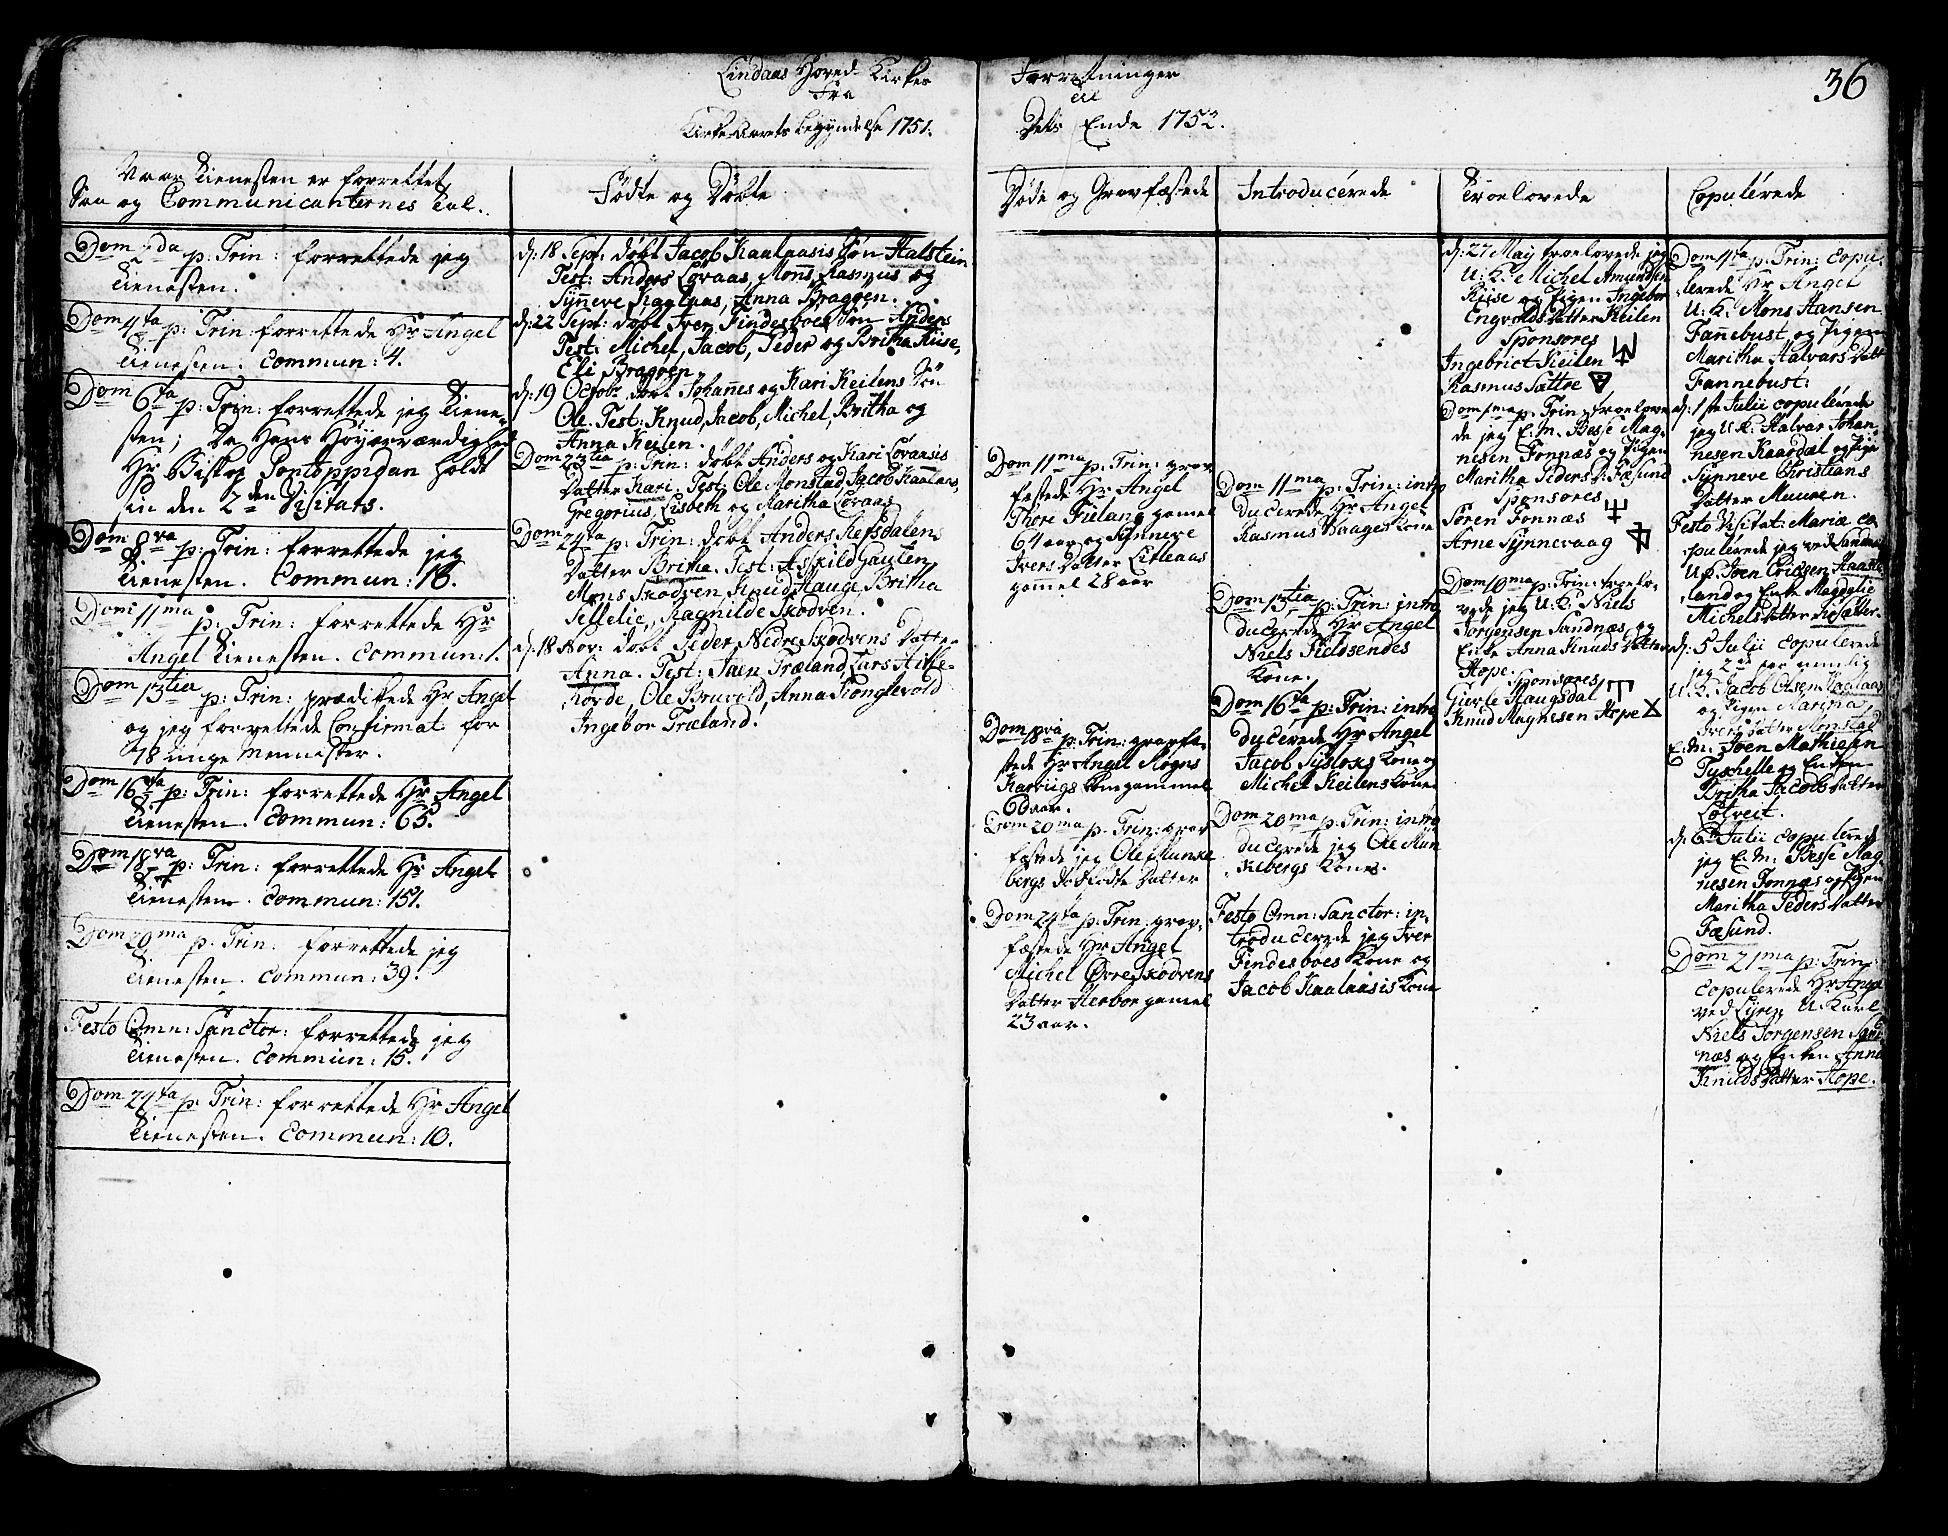 Lindaas Hoved Kirkes
Fra
Kirke Aarets begyndelse 1751.
Forretninger
til
Dets Ende 1752.
36
Naar Tienesten er forrettet,
Saa og Communicanternes Tal.
Dom 2da p: Trin: forrettede jeg
Tienesten.
Dom 4ta p: Trin forrettede Hr Angel
Tienesten. Commun: 4.
Dom 6ta p: Trin: forrettede jeg Tiene-
sten; Da Hans Höyærværdighed
Hr Biskop Pontoppidan holdt
sin den 2den Visitats.
Dom 8va p: Trin: forrettede jeg
Tienesten. Commun: 18.
Dom 11ma p: Trin: forrettede Hr
Angel Tienesten. Commun: 1.
Dom 13tia p: Trin: prædikede Hr Angel
og jeg forrettede Confirmat. for
78 unge Mennisker.
Dom 16ta p: Trin: forrettede Hr Angel
Tienesten. Commun: 65.
Dom 18va p: Trin: forrettede Hr Angel
Tienesten. Commun: 151.
Dom 20ma p: Trin: forrettede jeg
Tienesten. Commun: 39.
Festo Omn: Sanctor: forrettede jeg
Tienesten. Commun: 15.
Dom 24ta p: Trin: forrettede Hr Angel
Tienesten. Commun: 10.
Födte og Döbte
d: 18 Sept: döbt Jacob Kaalaasis Sön Halstein
Test: Anders Lövaas, Mons, Rasmus og
Synneve Kaalaas, Anna Braggen.
d: 22 Sept: döbt Iver Findesboes Sön Anders
Test: Michel, Jacob, Peder og Britha Riise,
Eli Braggen.
d: 19 Octobr döbt Johannes og Kari Keilens Sön
Ole. Test: Knud, Jacob, Michel, Britha og
Anna Keilen.
Dom 23tia p: Trin: döbt Anders og Kari Lövaasis
Datter Kari. Test: Ole Monstad Jacob Kaalaas,
Gregorius, Lisbeth og Maritha Lövaas
Dom 24ta p: Trin: döbt Anders Refsdalens
Datter Britha. Test: Askild Gaulen,
Mons Skodven, Knud Hauge Britha
Sellelie, Ragnilde Skodven.
d: 18 Nov: döbt Peder Nedre Skodvens Datter
Anna. Test: Steen Træland, Lars Hille-
Ole Bruvold, Anna
Ingebor Træland.
Döde og Gravfæstede
Dom 11ma p: Trin: grav
fæstede Hr Angel
Thore Fieland gamel
64 aar og Synneve
Ivers Datter Litleaas
gammel 28 aar
Dom 18va p: Trin: gravfæ-
stede Hr Angel Mogns
gammel
60 aar.
Dom 20ma p: Trin: grav
fæstede jeg Ole Munke
bergs dödfödte Datter
Dom 24ta p: Trin grav-
fæstede Hr Angel
Michel Övre Skodvens
Datter Herbor gamel
23 aar.
Introducérede
Dom 11ma p: Trin: intro
ducerede Hr Angel
Rasmus Vaages Kone
Dom 13tia p: Trin: intro
ducerede Hr Angel
Niels Kieldsendes
Kone.
Dom 16ta p: Trin: intro
ducerede Hr Angel
Jacob Syslaks Kone og
Michel Keilens Kone.
Dom 20ma p: Trin: intro
ducerede jeg Ole Mun
kebergs Kone.
Festo Omn: Sanctor: in-
troducerede jeg Iver
Findesboes Kone og
Jacob Kaalaasis Kone
Troelovede
d: 27 May troelovede jeg
U: K: Michel Amundsen
Riise og Pigen Ingebor
Engvolds Datter Keilen
Sponsores
Ingebrict Keilen
Rasmus Sættre
Dom 1ma p: Trin troelove-
de jeg E: M: Besse Mag-
nesen Fonnæs og Pigen
Maritha Peders D: Fæsund
Sponsores
Sören Fonnæs
Arne Synnevaag
Dom 10ma p: Trin: troelo-
vede jeg U: K: Niels
Jörgensen Sandnæs og
Enke Anna Knuds Datter
Hope.
Sponsores
Gierle Haugsdal
Knud Magnesen Hope
Copulérede
Dom 1sta p: Trin: copu-
lerede Hr Angel
U: K: Mons Hansen
Fannebust og Pigen
Maritha Halvars Datt
Fannebust:
d: 1ste Julii copulérede
jeg U: K: Halvar Johan-
nesen Kaardal og Pige
Synneve Christians
Datter Muuren.
Festo Visitat: Mariæ co-
pulérede jeg ved
U: K: Joen Ericsen
land og Enke Magdelie
Michels Datter
d: 5 Julii copulerede
jeg 2de Par nemlig
U: K: Jacob Olsen Kaalaas
og Pigen Maritha
Ivers Datter Monstad
E: M: Joen Mathiesen
Tyschelle og Enken
Britha Jacobs Datter
Lötveit.
d: 6te Julii copulérede
jeg E: M: Besse Mag-
nesen Fonnæs og Pigen
Maritha Peders Datter
Fæsund.
Dom 21ma p: Trin:
copulerede Hr Angel
ved Lyren U: Karl
Niels Jörgensen Sand
næs og Enken Anna
Knuds Datter Hope.